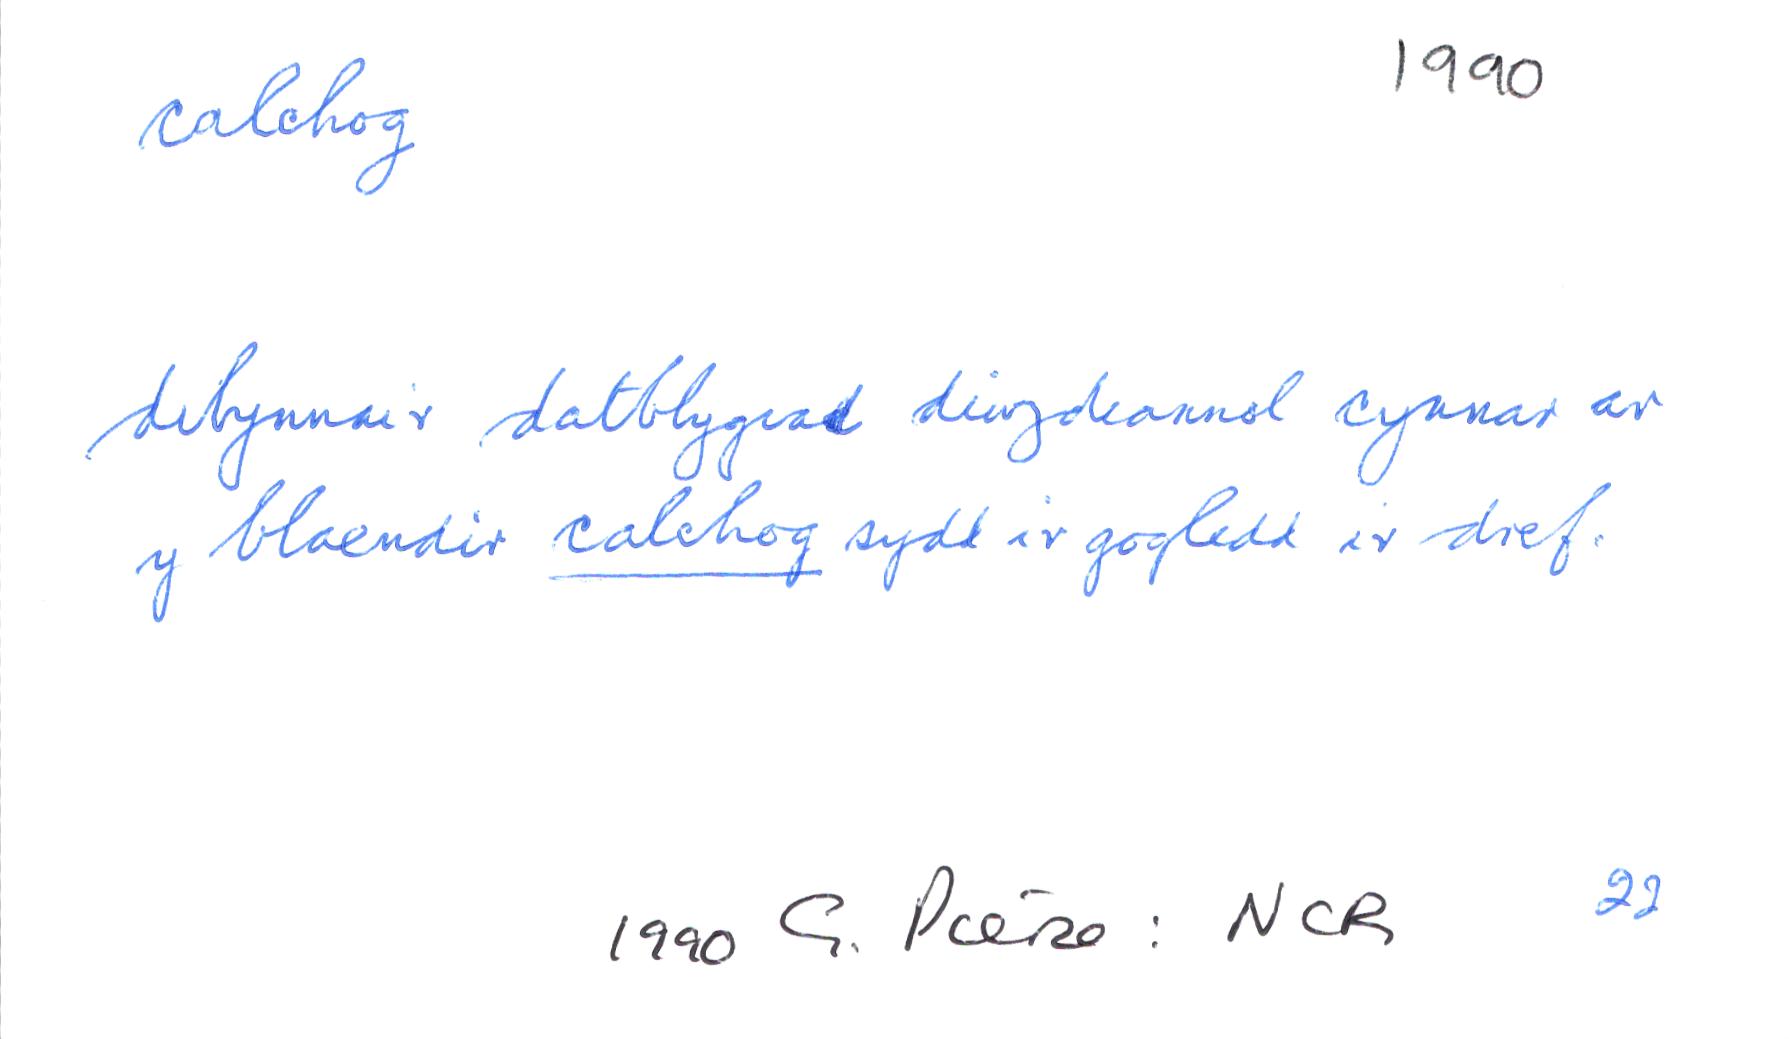 calchog
1990
dibynnai'r datblygiad diwydiannol cynnar ar
y blaendir calchog sydd i'r gogledd i'r dref.
1990 G. : NCR
22